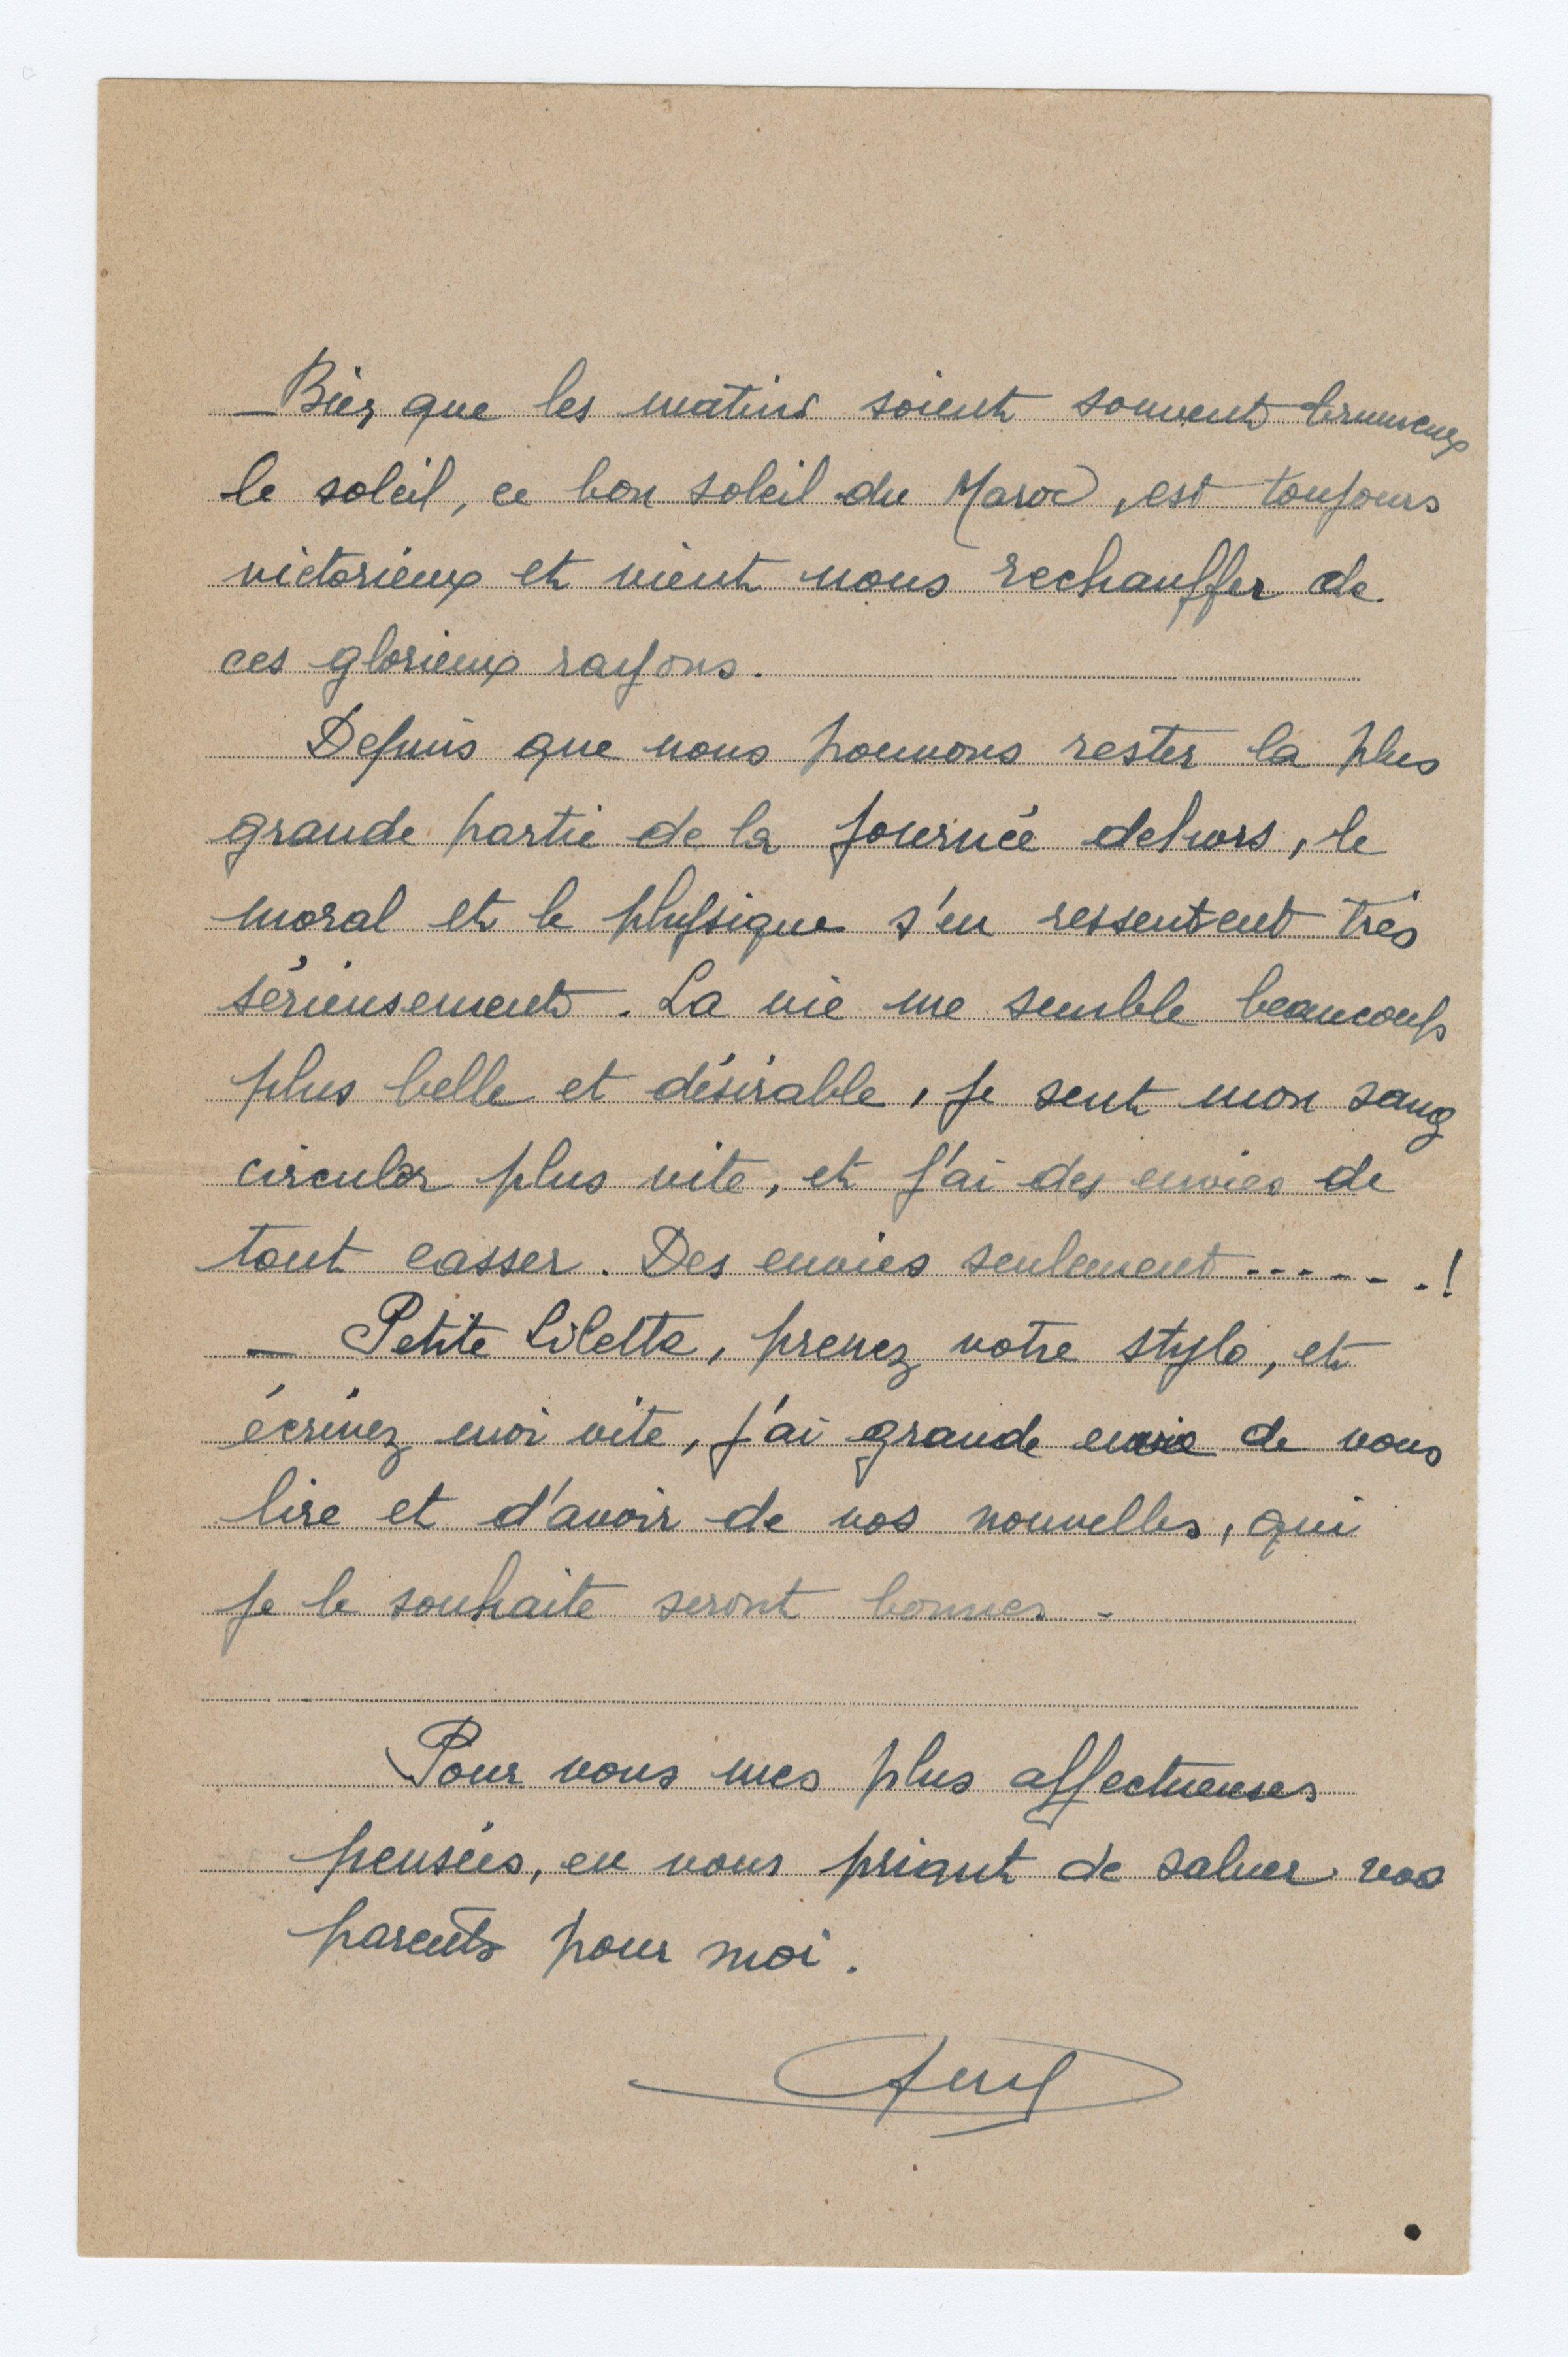 _ Bien que les matins soient souvent brumeux
le soleil, ce bon soleil du Maroc, est toujours
victorieux et vient nous rechauffer de
ces glorieux rayons.
Depuis que nous pouvons rester la plus
grande partie de la journée dehors, le
moral et le physique s'en ressentent très
sérieusement. La vie me semble beaucoup
plus belle et désirable, je sent mon sang
circuler plus vite, et j'ai des envies de
tout casser. Des envies seulement ......!
_ Petite Lilette, prenez votre stylo, et
écrivez moi vite, j'ai grande envie de vous
lire et d'avoir de vos nouvelles, qui
je le souhaite seront bonnes -
Pour vous mes plus affectueuses
pensées, en vous priant de saluer vos
parents pour moi.